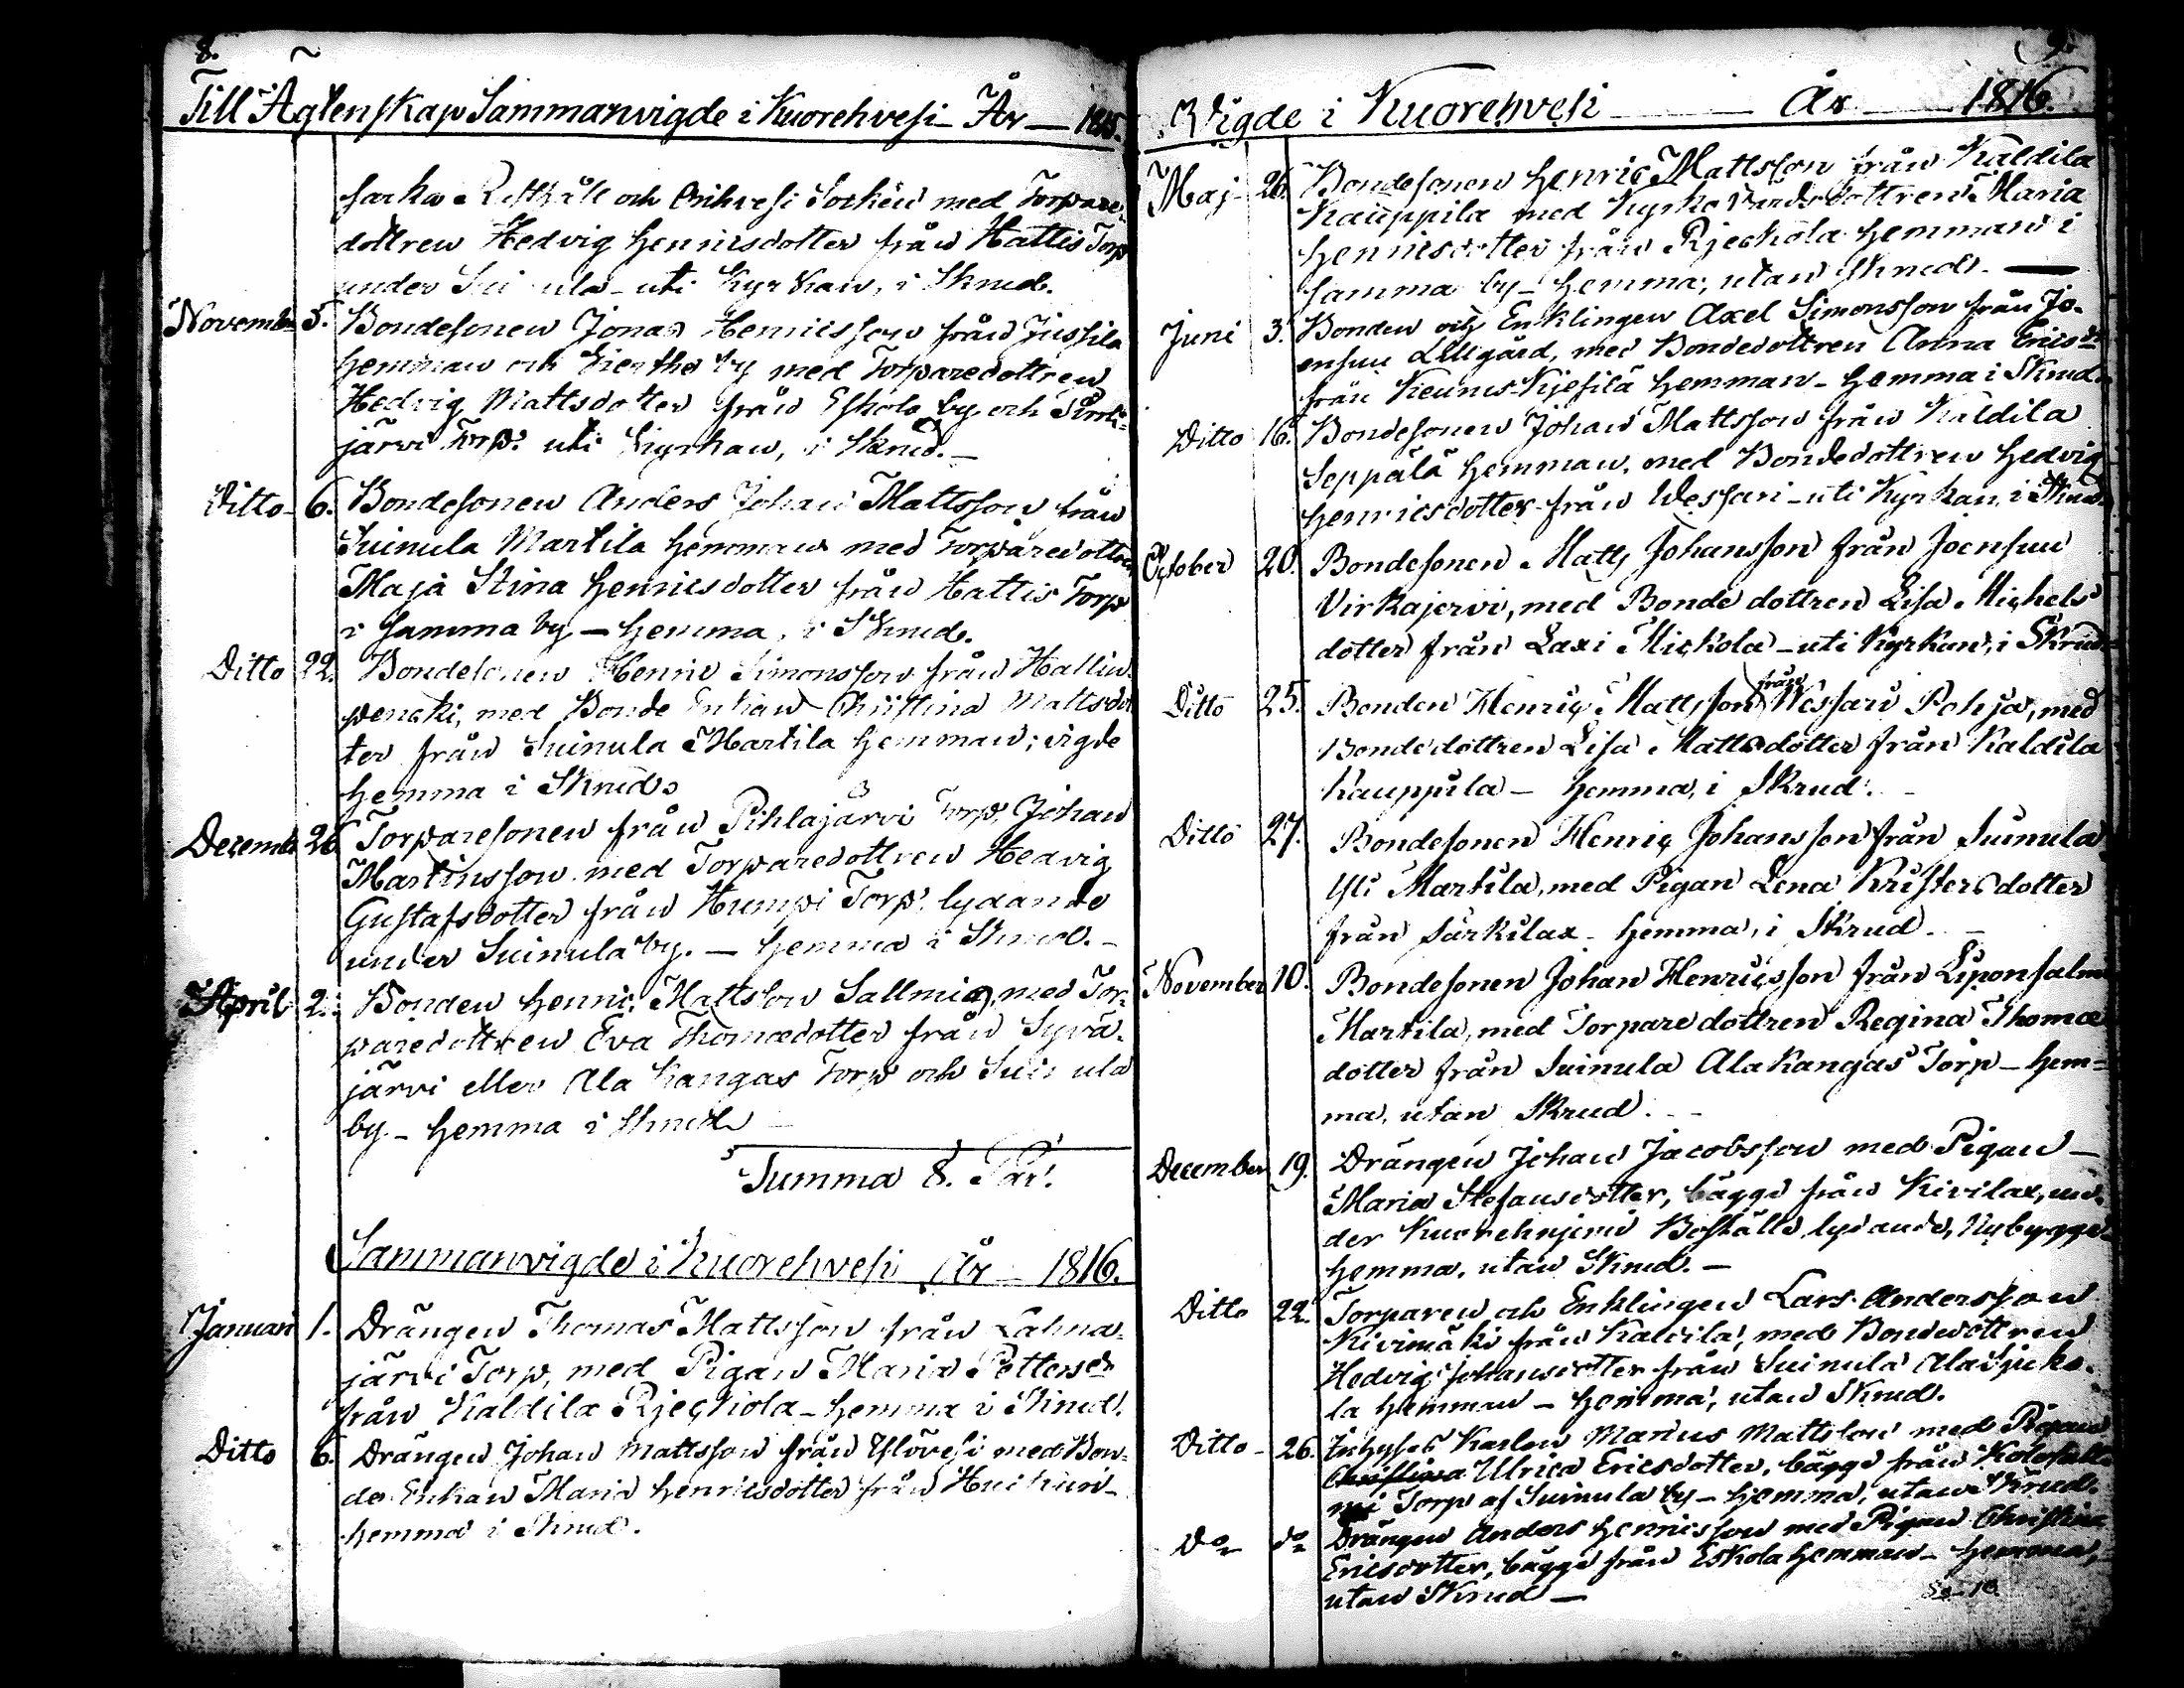 8.
Till Ägtenskap Sammanvigde i Kuorehvesi - År - 1815.
och Orihvesi Sochen med Torpare-
dottren Hedvig Henricsdotter från Hattis Torp
under Suinula - uti Kyrkan, i Skrud.
November 5. Bondesonen Jonas Henricsson från Jussila
hemman och by med Torparedottren
Hedvig Mattsdotter från Eskola by och
järvi Torp. uti Kyrkan, i Skrud. -
Ditto - 6. Bondesonen Anders Johan Mattsson från
Suinula Martila hemman med Torparedottren
Maja Stina Henricsdotter från Hattis Torp
i samma by - hemma, i Skrud.
Ditto 22. Bondesonen Henric Simonsson från Hallin-
penski, med Bonde Enkan Christina Mattsdot
ter från Suinula Martila hemman; vigde
hemma i Skrud
Decemb. 26 Torparesonen från Pihlajärvi Torp, Johan
Martinsson med Torparedottren Hedvig
Gustafsdotter från Humpi Torp, lydande
under Suinula by. - hemma i Skrud. -
April 2. Bonden Henric Mattsson Sallmi, med Tor-
paredottren Eva Thomædotter från Syvä-
järvi eller Ala Kangas Torp och Suinula
by - hemma i Skrud -
Summa 8. Par.
Sammanvigde i Kuorehvesi År - 1816.
Januari 1. Drängen Thomas Mattsson från Lahna-
järvi Torp, med Pigan Maria Pettersdr
från Kaldila Rjeckola - hemma i Skrud.
Ditto 6. Drängen Johan Mattsson från Ylövesi med Bon-
de Enkan Maria Henricsdotter från Huikuri -
hemma i Skrud.
9.
Vigde i Kuorehvesi - År - 1816.
Maj - 26. Bondesonen Henric Mattsson från Kaldila
Kauppila med Kyrko dottren Maria
Henricsdotter från Rjeckola hemman i
samma by - hemma, utan Skrud. -
Juni 3. Bonden och Enklingen Axel Simonsson från Jo-
ensuu Lillgård, med Bondedottren Anna Ericsdr
från Keunis-Kjesilä hemman - hemma i Skrud
Ditto 16. Bondesonen Johan Mattsson från Kaldila
Seppälä hemman, med Bondedottren Hedvig
Henricsdotter från Wessari - uti Kyrkan, i Skrud.
October 20. Bondesonen Matts Johansson från Joensuu
Virkajervi, med Bonde dottren Lisa Michels
dotter från Laxi Mickola - uti Kyrkan, i Skrud
från
Ditto 25. Bonden Henric Mattsson Wessari Pohja, med
Bondedottren Lisa Mattsdotter från Kaldila
Kauppila - hemma, i Skrud. -
Ditto 27. Bondesonen Henric Johansson från Suinula
Yli Martila, med Pigan Lena Kristersdotter
från Särkilax - hemma, i Skrud. -
November 10. Bondesonen Johan Henricsson från Liponsalmi
Martila, med Torparedottren Regina Thomæ
dotter från Suinula Alakangas Torp - hem-
ma, utan Skrud. -
December 19. Drängen Johan Jacobsson med Pigan -
Maria Stefansdotter, bägge från Kivilax, un-
der Kuorehnjemi Boställe lydande, Nybygge
hemma, utan Skrud. -
Ditto 22. Torparen och Enklingen Lars Andersson
Kivimäki från Kaldila, med Bondedottren
Hedvig Johansdotter från Suinula Ala
la hemman - hemma, utan Skrud.
Ditto - 26. Inhyses Karlen Marius Mattsson med Pigan
Christina Ulrica Ericsdotter, bägge från
Torp af Suinula by - hemma, utan Skrud.
Do do Drängen Anders Henricsson med Pigan Christina
Ericsdotter, bägge från Eskola hemman - hemma,
utan Skrud -